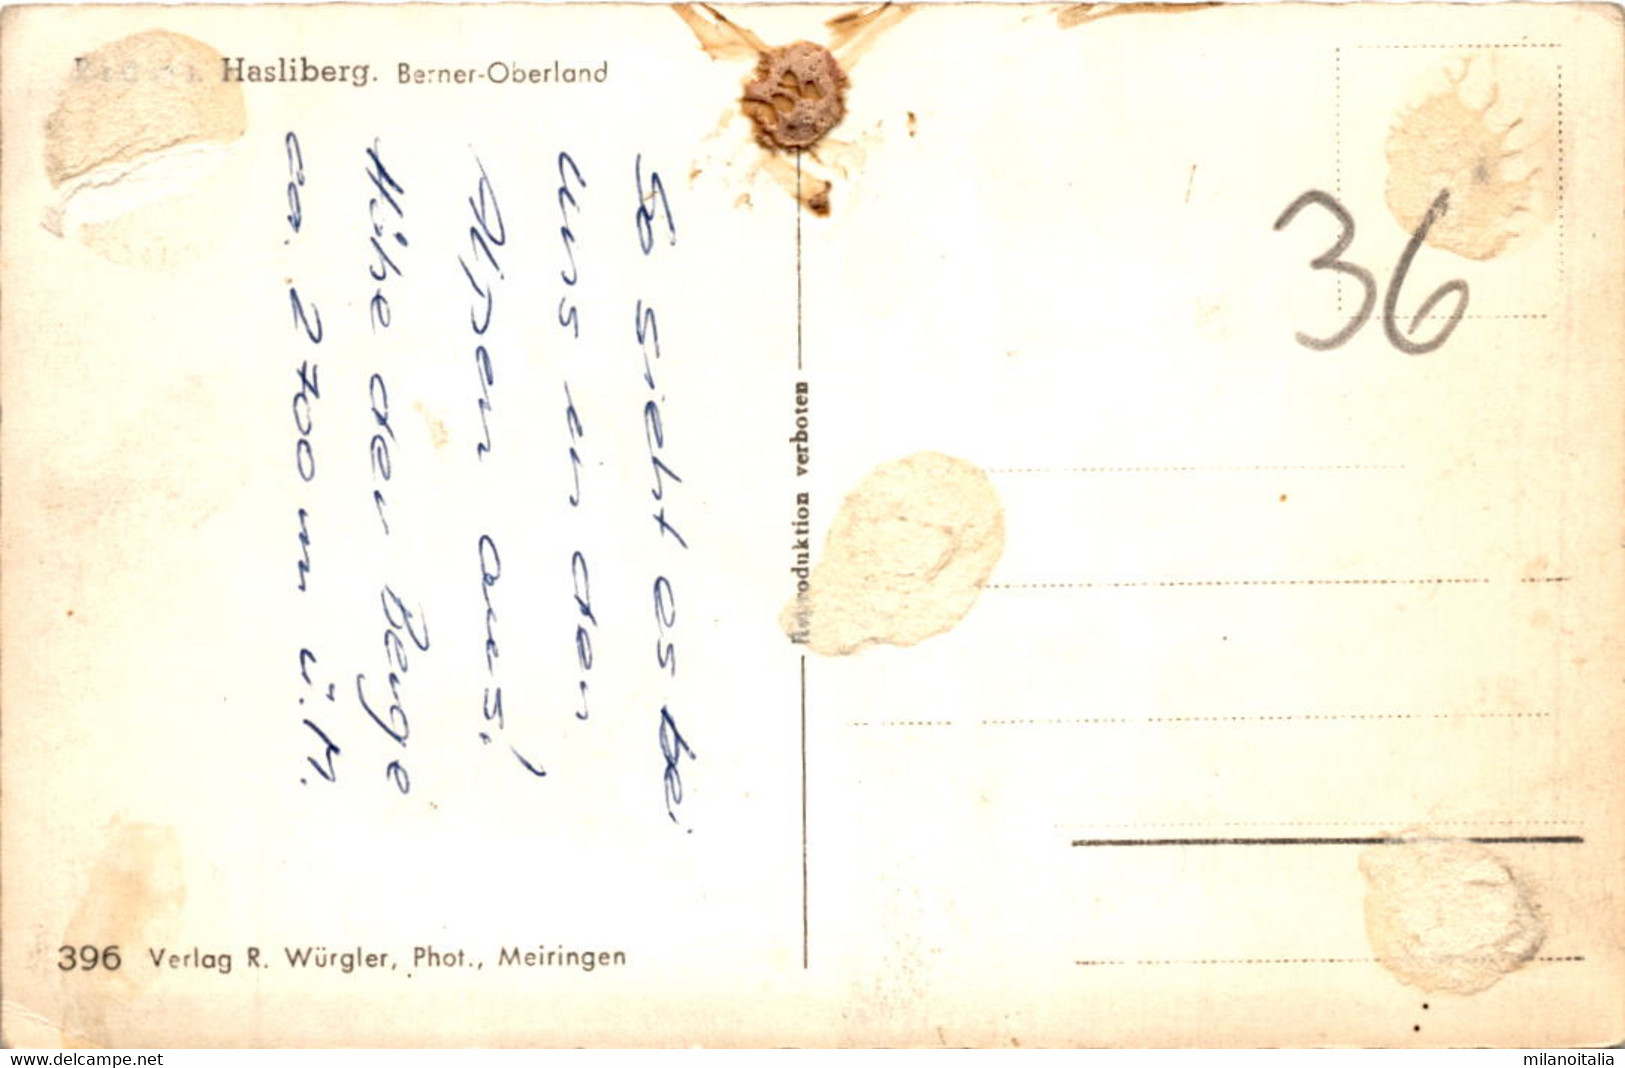 Hasliberg. Berner-Oberland
So sieht es bei
uns in den
Alpen aus!
Höhe der Berge
ca. 2700 m ü. M.
396 Verlag R. Würgler, Phot., Meiringen
Reproduktion verboten
36
delcampe.net
milanoitalia